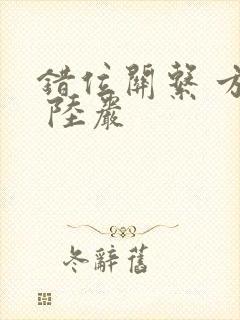 錯位關繫 方
陸嚴
冬辭舊